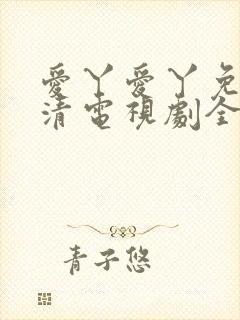 愛丫愛丫免
清電視劇全
青子悠